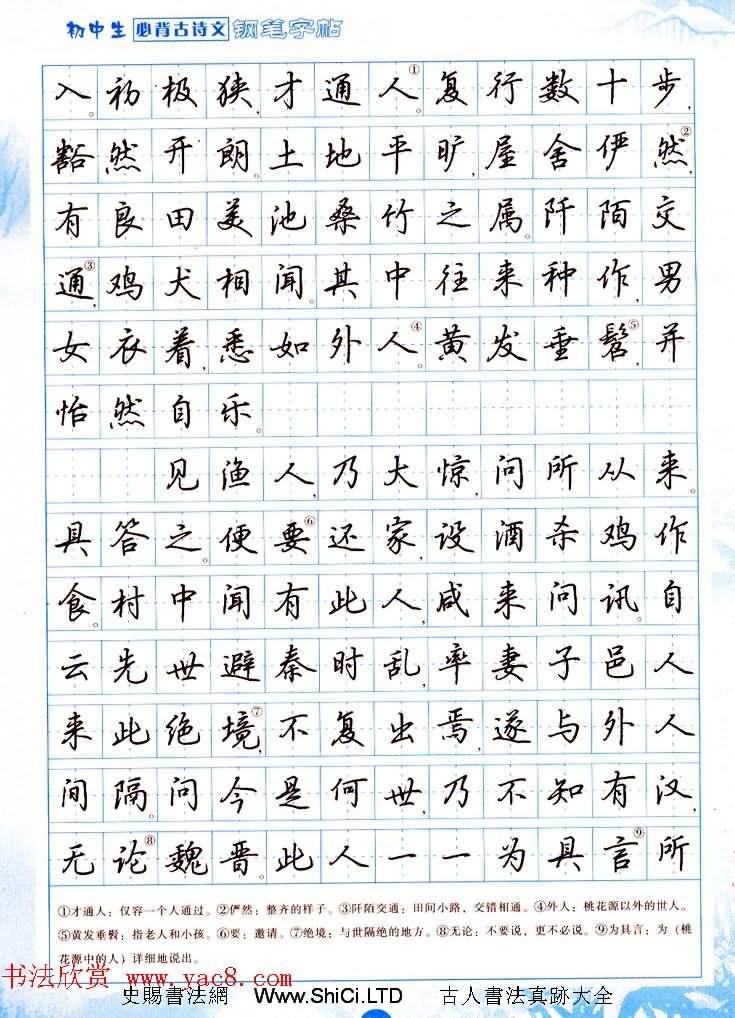 初中生 必背古诗文 钢笔字帖
入。初极狭，才通人①。复行数十步，
豁然开朗。土地平旷，屋舍俨然②，
有良田美池桑竹之属。阡陌交
通③，鸡犬相闻。其中往来种作，男
女衣着，悉如外人④。黄发垂髫⑤，并
怡然自乐。
见渔人，乃大惊，问所从来。
具答之。便要⑥还家，设酒杀鸡作
食。村中闻有此人，咸来问讯。自
云先世避秦时乱，率妻子邑人
来此绝境⑦，不复出焉，遂与外人
间隔。问今是何世，乃不知有汉，
无论⑧魏晋。此人一一为具言⑨所
①才通人：仅容一个人通过。②俨然：整齐的样子。③阡陌交通：田间小路，交错相通。④外人：桃花源以外的世人。
⑤黄发垂髫：指老人和小孩。⑥要：邀请。⑦绝境：与世隔绝的地方。⑧无论：不要说，更不必说。⑨为具言：为（桃
花源中的人）详细地说出。
书法欣赏 www.yac8.com
史賜書法網 Www.ShiCi.LTD 古人書法真跡大全